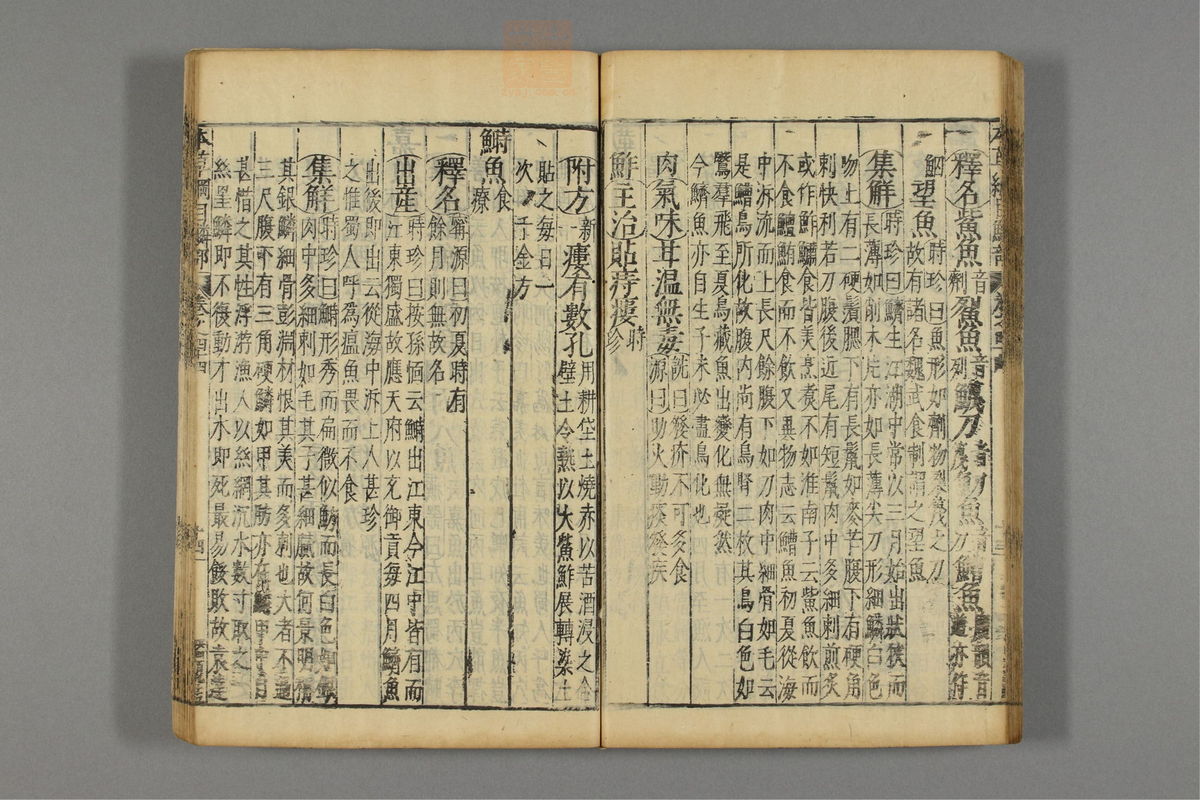 釋名鮆魚音劑鮤魚音列鱴刀音篾魛魚音刀鱭魚廣韻音遒亦作
䱥望魚時珍曰魚形如劑物裂篾之刀
故有諸名魏武食制謂之望魚
集解時珍曰鱭生江湖中常以三月始出狀狹而
長薄如削木片亦如長薄尖刀形細鱗白色
吻上有二硬鬚腮下有長鬣如麥芒腹下有硬角
刺快利若刀腹後近尾有短鬣肉中多細刺煎炙
或作鮓鱐食皆美烹煮不如淮南子云鮆魚飲而
不食鱣鮪食而不飲又異物志云鰽魚初夏從海
中泝流而上長尺餘腹下如刀肉中細骨如毛云
是鰽鳥所化故腹內尚有鳥腎二枚其鳥白色如
鷖羣飛至夏鳥藏魚出變化無疑然
今鱭魚亦自生子未必盡鳥化也
肉氣味甘溫無毒詵曰發疥不可多食
源曰助火動痰發疾
鮓主治貼痔瘻時珍
附方新一瘻有數孔用耕垡土燒赤以苦酒浸之合
壁土令熱以大鮆鮓展轉染土
貼之每日一
次千金方
鰣魚食療
釋名甯源曰初夏時有
餘月則無故名
出產時珍曰按孫愐云鰣出江東今江中皆有而
江東獨盛故應天府以充御貢每四月鱭魚
出後即出云從海中泝上人甚珍
之惟蜀人呼爲瘟魚畏而不食
集解時珍曰鰣形秀而扁微似魴而長白色如銀
肉中多細刺如毛其子甚細膩故何景明稱
其銀鱗細骨彭淵材恨其美而多刺也大者不過
三尺腹下有三角硬鱗如甲其肪亦在鱗甲中自
甚惜之其性浮游漁人以絲網沉水數寸取之一
絲罣鱗即不復動才出水即死最易餒敗故袁達